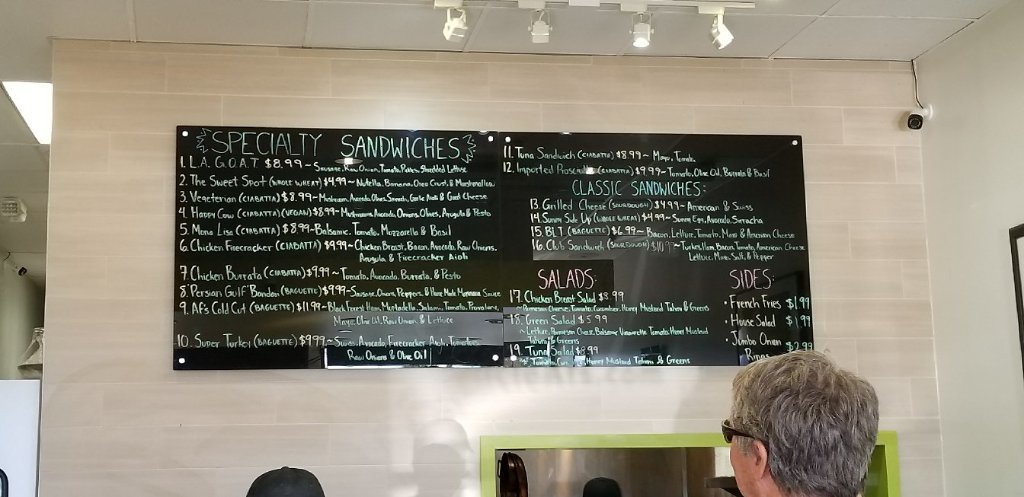 SPECIALTY SANDWICHES
1. L.A. G.O.A.T $8.99~ Sausage, Raw Onion, Tomato, Shredded Lettuce
2. The Sweet Spot (WHOLE WHEAT) $4.99~ Nutella, Banana, Oreo Crust, & Marshmallow
3. Vegeterian (CIABATTA) $8.99~ Mushroom, Avocado, Olives, Spinach, Garlic Aioli & Goat Cheese
4. Happy Cow (CIABATTA) (VEGAN) $8.99~ Mushrooms, Avocado, Onions, Olives, Arugula & Pesto
5. Mona Lisa (CIABATTA) $8.99~ Balsamic, Tomato, Mozzarella & Basil
6. Chicken Firecracker (CIABATTA) $9.99~ Chicken Breast, Bacon, Avocado, Raw Onions,
Arugula & Firecracker Aioli
7. Chicken Burrata (CIABATTA) $9.99~ Tomato, Avocado, Burrata, & Pesto
8. Persian Gulf Bandari (BAGUETTE) $9.99~ Sausage, Onion, Peppers, & Home Made Marinara Sauce
9. Al's Cold Cut (BAGUETTE) $11.99~ Black Forest Ham, Mortadella, Salami, Tomato, Provolone,
Mayo, Olive Oil, Raw Onion & Lettuce
10. Super Turkey (BAGUETTE) $9.99~ Swiss, Avocado, Firecracker Aioli, Tomatoes,
Raw Onions & Olive Oil
11. Tuna Sandwich (CIABATTA) $8.99~ Mayo, Tomato
12. Imported $9.99~ Tomato, Olive Oil, Burrata & Basil
CLASSIC SANDWICHES:
13. Grilled Cheese (SOURDOUGH) $4.99~ American & Swiss
14. Sunny Side Up (WHOLE WHEAT) $4.99~ Sunny Egg, Avocado, Sriracha
15. BLT (BAGUETTE) $6.99~ Bacon, Lettuce, Tomato, Mayo & American Cheese
16. Club Sandwich (SOURDOUGH) ~Turkey, Ham, Bacon, Tomato, American Cheese
Lettuce, Mayo, Salt, & Pepper
SALADS:
17. Chicken Breast Salad $8.99
~ Parmesan Cheese, Tomato, Cucumber, Honey Mustard Tahini & Greens
18. Green Salad $5.99
~ Lettuce, Parmesan Cheese, Balsamic Vinaigrette, Tomato, Honey Mustard
Tahini & Greens
19. Tuna Salad $8.99
Tomato, Honey Mustard Tahini & Greens
SIDES:
• French Fries $1.99
• House Salad $1.99
• Jumbo Onion $2.99
Rings